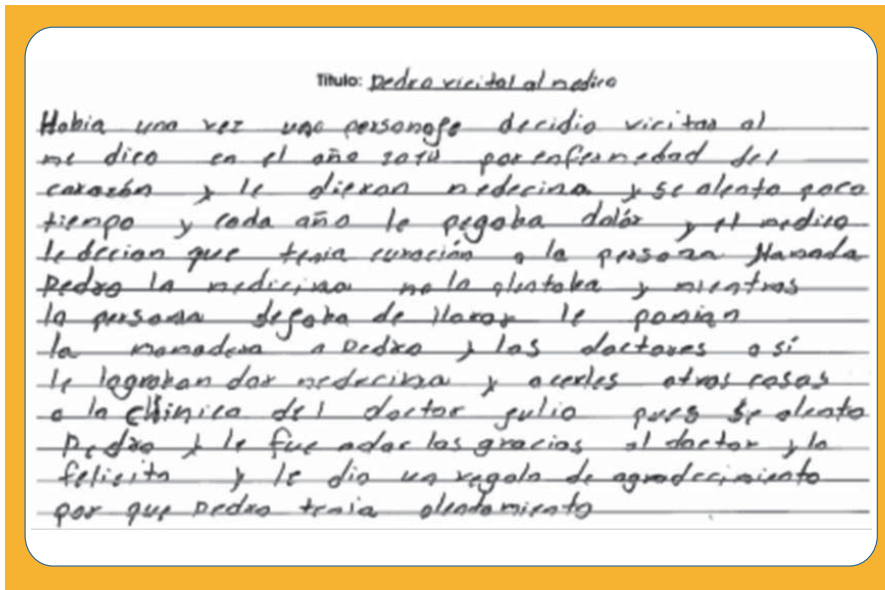 Título: Pedro vicital al medico
Habia una vez uno personage decidio vicitar al
me dico en el año 2010 por enfermedad del
corazón y le dieron medecina y se alento poco
tiempo y cada año le pegaba dolór y el medico
le decian que tenia curación a la persona llamada
Pedro la medicina no la alentaba y mientras
la persona degaba de llorar le ponian
la mamadera a Pedro y las doctores a sí
le lograban dar medecina y acerles otras cosas
a la Clinica del doctor gulio pues se alento
Pedro y le fue adar las gracias al doctor y lo
felicito y le dio un regalo de agradecimiento
por que Pedro tenia alentamiento